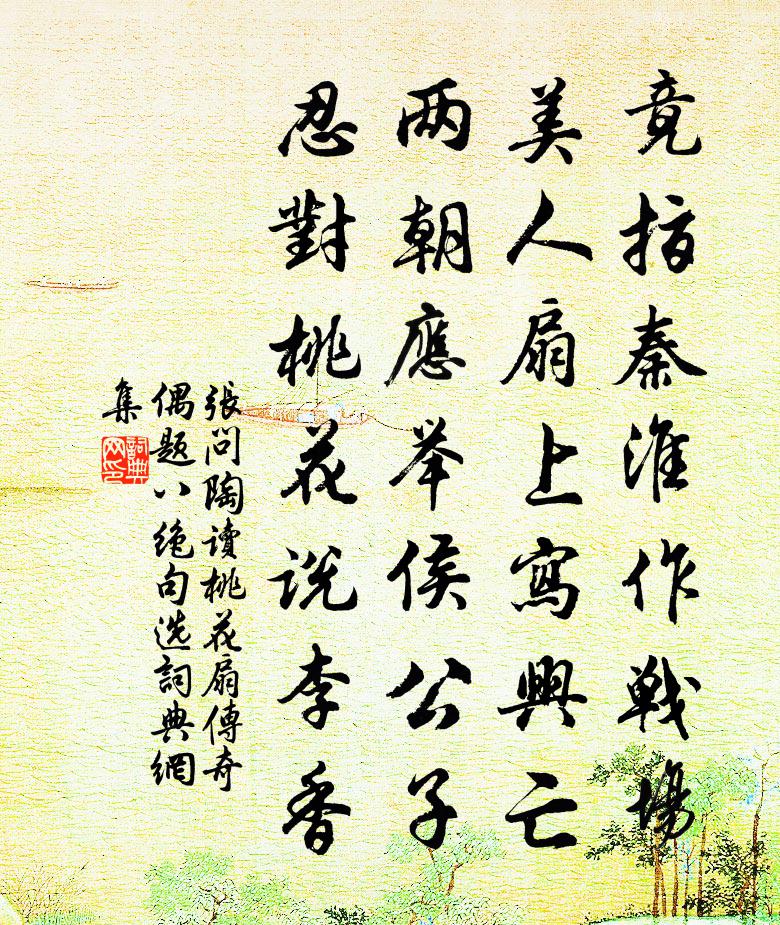 竟指秦淮作戦場
美人扇上寫興亡
两朝應举侯公子
忍對桃花説李香
張問陶讀桃花扇傳奇
偶題八絶句选詞典網
集
詞典
网印